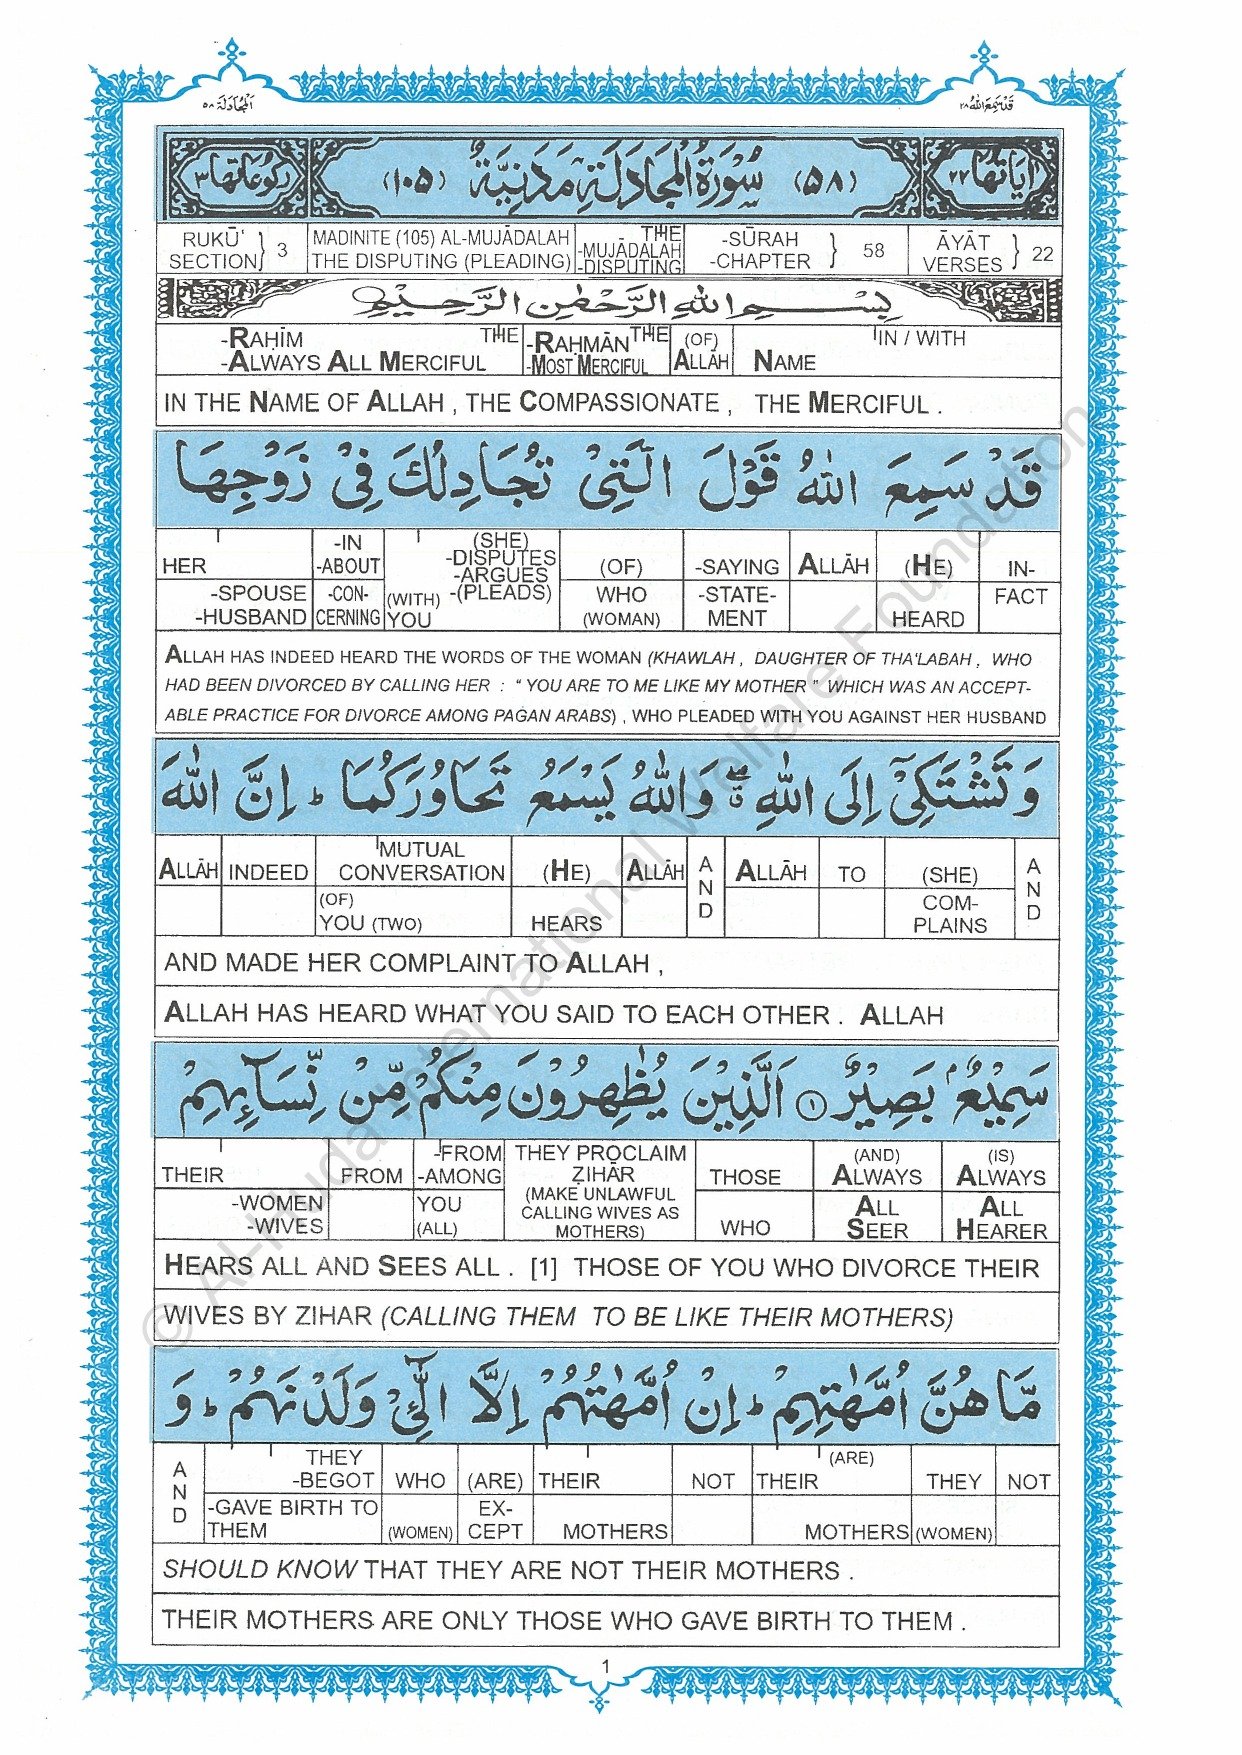 المجادلة ٥٨
قد سمع الله ٢٨
اٰیَاتُهَا ٢٢
(٥٨) سُوْرَةُ الْمُجَادَلَةِ مَدَنِیَّةٌ (١٠٥)
رُکُوْعَاتُهَا ٣
RUKŪ' SECTION } 3 MADINITE (105) AL-MUJĀDALAH THE DISPUTING (PLEADING) THE -MUJĀDALAH -DISPUTING -SŪRAH -CHAPTER } 58 ĀYĀT VERSES } 22
بِسْمِ اللّٰهِ الرَّحْمٰنِ الرَّحِیْمِ
-RAḤĪM THE -RAḤMĀN THE (OF) IN / WITH
-ALWAYS ALL MERCIFUL -MOST MERCIFUL ALLĀH NAME
IN THE NAME OF ALLAH , THE COMPASSIONATE , THE MERCIFUL .
قَدْ سَمِعَ اللّٰهُ قَوْلَ الَّتِیْ تُجَادِلُكَ فِیْ زَوْجِهَا
HER -IN -ABOUT (SHE) -DISPUTES -ARGUES -(PLEADS) (OF) -SAYING ALLĀH (HE) IN-
-SPOUSE -HUSBAND -CON- CERNING (WITH) YOU WHO (WOMAN) -STATE- MENT HEARD FACT
ALLAH HAS INDEED HEARD THE WORDS OF THE WOMAN (KHAWLAH , DAUGHTER OF THA'LABAH , WHO
HAD BEEN DIVORCED BY CALLING HER : " YOU ARE TO ME LIKE MY MOTHER " WHICH WAS AN ACCEPT-
ABLE PRACTICE FOR DIVORCE AMONG PAGAN ARABS) , WHO PLEADED WITH YOU AGAINST HER HUSBAND
وَ تَشْتَكِیْۤ اِلَی اللّٰهِ ۖۗ وَاللّٰهُ یَسْمَعُ تَحَاوُرَكُمَا ؕ اِنَّ اللّٰهَ
ALLĀH INDEED MUTUAL CONVERSATION (HE) ALLĀH AND ALLĀH TO (SHE) AND
(OF) YOU (TWO) HEARS COM- PLAINS
AND MADE HER COMPLAINT TO ALLAH ,
ALLAH HAS HEARD WHAT YOU SAID TO EACH OTHER . ALLAH
سَمِیْعٌۢ بَصِیْرٌ ۝١ اَلَّذِیْنَ یُظٰهِرُوْنَ مِنْكُمْ مِّنْ نِّسَآئِهِمْ
THEIR FROM -FROM -AMONG THEY PROCLAIM ẒIHĀR (MAKE UNLAWFUL CALLING WIVES AS MOTHERS) THOSE (AND) ALWAYS (IS) ALWAYS
-WOMEN -WIVES YOU (ALL) WHO ALL SEER ALL HEARER
HEARS ALL AND SEES ALL . [1] THOSE OF YOU WHO DIVORCE THEIR
WIVES BY ZIHAR (CALLING THEM TO BE LIKE THEIR MOTHERS)
مَّا هُنَّ اُمَّهٰتِهِمْ ؕ اِنْ اُمَّهٰتُهُمْ اِلَّا الّٰٓئِیْ وَلَدْنَهُمْ ؕ وَ
AND THEY -BEGOT WHO (ARE) THEIR NOT THEIR (ARE) THEY NOT
-GAVE BIRTH TO THEM (WOMEN) EX- CEPT MOTHERS MOTHERS (WOMEN)
SHOULD KNOW THAT THEY ARE NOT THEIR MOTHERS .
THEIR MOTHERS ARE ONLY THOSE WHO GAVE BIRTH TO THEM .
1
© Al-Huda International Welfare Foundation